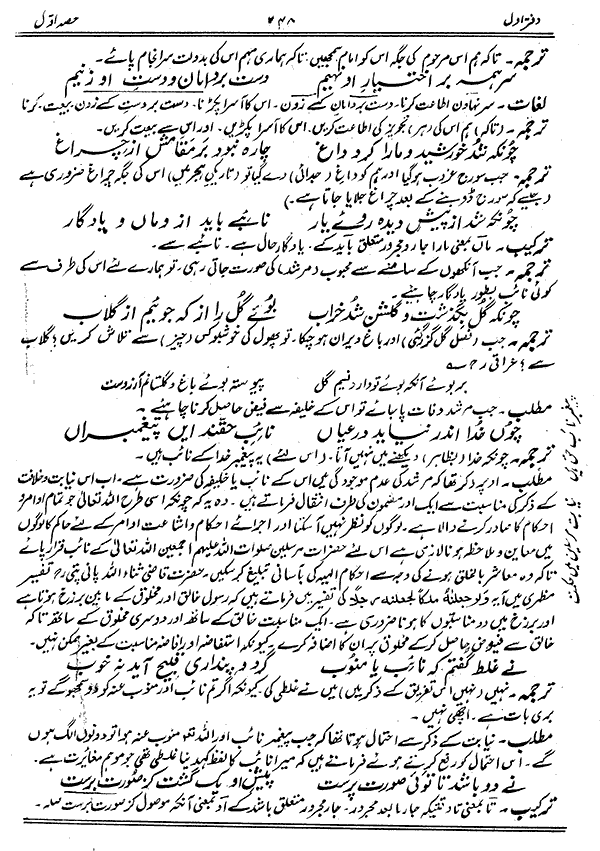 دفتر اول ۲۴۸ حصہ اوّل
ترجمہ۔ تاکہ ہم اس مرحوم کی جگہ اس کو امام سمجھیں تاکہ ہماری مہم اس کی بدولت سرانجام پائے۔
سر ہمہ بر اختیارِ او نہیم دست بر دامان و دستِ او زنیم
لغات۔ سرنہادن اطاعت کرنا۔ دست بردامانِ کسے زدن۔ اس کا آسرا پکڑنا۔ دست بردستِ کسے زدن بیعت کرنا
ترجمہ۔ (تاکہ) ہم اس کی (ہر) تجویز کی اطاعت کریں۔ اس کا آسرا پکڑیں۔ اور اس سے بیعت کریں۔
چونکہ شد خورشید و مارا کرد داغ چارہ نبود بر مقامش از چراغ
ترجمہ۔ جب سورج غروب ہوگیا اور ہم کو داغِ (جدائی) دے گیا تو (تاریکیِ ہجر میں) اس کی جگہ چراغ ضروری ہے
(جیسے کہ سورج ڈوبنے کے بعد چراغ جلایا جاتا ہے۔)
چونکہ شد از پیشِ دیدہ روئے یار نائبے باید ازو ماں یادگار
ترکیب۔ ماں بمعنی مارا جار و مجرور متعلق باید کے۔ یادگار حال ہے۔ نائبے سے۔
ترجمہ۔ جب آنکھوں کے سامنے سے محبوب (مرشد) کی صورت جاتی رہی۔ تو ہمارے لئے اس کی طرف سے
کوئی نائب بطور یادگار چاہیئے۔
چونکہ گل بگذشت و گلشن شد خراب بوئے گل را از کہ جوئیم از گلاب
ترجمہ۔ جب (فصل) گل گزر گئی) اور باغ ویران ہو چکا۔ تو پھول کی خوشبو کس (چیز) سے تلاش کریں؟ گلاب
سے؟ عراقی رح ؎
ہر بوئے آنکہ بوئے تو دارد نسیم گل پیوستہ بوئے باغ و گلستانم آرزوست
مطلب۔ جب مرشد وفات پا جائے تو اس کے خلیفہ سے فیض حاصل کرنا چاہیئے۔
چوں خدا اندر نیاید در عیاں نائبِ حقند ایں پیغمبراں
ترجمہ۔ چونکہ خدا (بظاہر) دیکھنے میں نہیں آتا۔ (اس لئے) یہ پیغمبر خدا کے نائب ہیں۔
مطلب۔ اوپر ذکر تھا کہ مرشد کی عدم موجودگی میں اس کے نائب یا خلیفہ کی ضرورت ہے۔ اب اس نیابت و خلافت
کے ذکر کی مناسبت سے ایک اور مضمون کی طرف انتقال فرماتے ہیں۔ وہ یہ کہ چونکہ اسی طرح اللہ تعالیٰ جو تمام اوامر و
احکام کا صادر کرنے والا ہے۔ لوگوں کو نظر نہیں آسکتا اور اجرائے احکام و اشاعت اوامر کے لئے حاکم کا لوگوں
میں معاین و ملاحظ ہونا لازمی ہے اس لئے حضرات مرسلین صلوات اللہ علیہم اجمعین اللہ تعالیٰ کے نائب قرار پائے
تاکہ وہ معاشر بالخلق ہونے کی وجہ سے احکام الٰہیہ کی بآسانی تبلیغ کر سکیں۔ حضرت قاضی ثناء اللہ پانی پتی رح تفسیر
مظہری میں آیہ ولو جعلنٰہ ملکًا لجعلنٰہ رجلًا کی تفسیر میں فرماتے ہیں کہ رسول خالق اور مخلوق کے مابین برزخ ہوتا ہے
اور برزخ میں دو مناسبتوں کا ہونا ضروری ہے۔ ایک مناسبت خالق کے ساتھ اور دوسری مخلوق کے ساتھ تاکہ
خالق سے فیوض حاصل کرکے مخلوق پر ان کا اضافہ کرے۔ کیونکہ استفاضہ اور افاضہ مناسبت کے بغیر ممکن نہیں۔
نے غلط گفتم کہ نائب یا منوب گر دو پنداری قبیح آید نہ خوب
ترجمہ۔ نہیں (نہیں اس تفریق کے ذکر میں) میں نے غلطی کی۔ کیونکہ اگر تم نائب اور منوب عنہ کو دو سمجھو گے تو یہ
بری بات ہے۔ اچھی نہیں۔
مطلب۔ نیابت کے ذکر سے احتمال ہوتا تھا کہ جب پیغمبر نائب اور اللہ تعالیٰ منوب عنہ ہوا تو دونوں الگ ہوں
گے۔ اس احتمال کو رفع کرتے ہوئے فرماتے ہیں کہ میرا نائب کا لفظ کہدینا غلطی تھی جو موہم مغائرت ہے۔
نے دو باشد تا توئی صورت پرست پیشِ او یک گشت کز صورت برست
ترکیب۔ تا بمعنی تا وقتیکہ جار مابعد مجرور۔ جار مجرور متعلق باشد کے۔ او بمعنی آنکہ موصول کز صورت برست صلہ۔